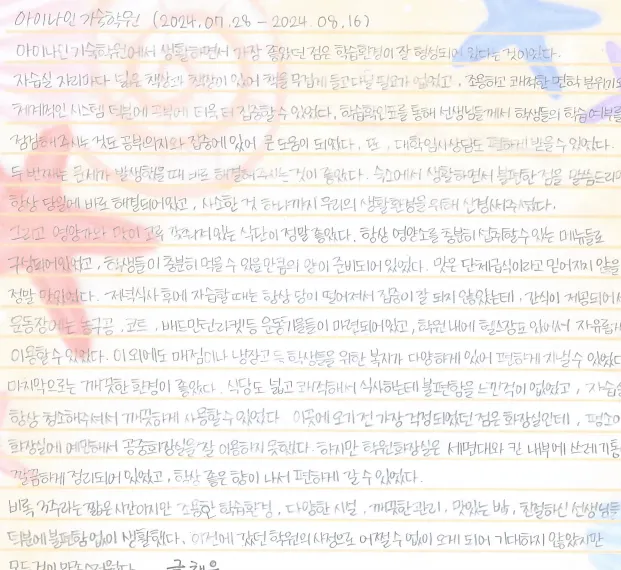 아이나인 기숙학원 (2024.07.28 - 2024.08.16)
아이나인 기숙학원에서 생활하면서 가장 좋았던 점은 학습환경이 잘 형성되어 있다는 것이었다.
자습실 자리마다 넓은 책상과 책장이 있어 책을 무겁게 들고 다닐 필요가 없었고, 조용하고 쾌적한 면학 분위기와
체계적인 시스템 덕분에 공부에 더욱 더 집중할 수 있었다. 학습확인표를 통해 선생님들께서 학생들의 학습 여부를
점검해주시는 것도 공부의지와 집중에 있어 큰 도움이 되었다. 또, 대학입시상담도 편하게 받을 수 있었다.
두 번째는 문제가 발생했을 때 바로 해결해주시는 것이 좋았다. 숙소에서 생활하면서 불편한 점을 말씀드리면
항상 당일에 바로 해결되었고, 사소한 것 하나까지 우리의 생활환경을 위해 신경써주셨다.
그리고 영양가와 맛이 고루 갖춰져 있는 식단이 정말 좋았다. 항상 영양소를 충분히 섭취할 수 있는 메뉴들로
구성되어 있었고, 학생들이 충분히 먹을 수 있을 만큼의 양이 준비되어 있었다. 맛은 단체급식이라고 믿어지지 않을
정말 맛있었다. 저녁식사 후에 자습할 때는 항상 당이 떨어져서 집중이 잘 되지 않았는데, 간식이 제공되어서
운동장에는 농구공, 코트, 배드민턴라켓 등 운동기물들이 마련되어 있었고, 학원 내에 헬스장도 있어서 자유롭게
이용할 수 있었다. 이 외에도 매점이나 냉장고 등 학생들을 위한 복지가 다양하게 있어 편하게 지낼 수 있었다
마지막으로는 깨끗한 환경이 좋았다. 식당도 넓고 쾌적해서 식사하는데 불편함을 느낀적이 없었고, 자습실
항상 청소해주셔서 깨끗하게 사용할 수 있었다 이곳에 오기 전 가장 걱정되었던 점은 화장실인데, 평소에
화장실에 예민해서 공중화장실을 잘 이용하지 못했다. 하지만 학원화장실은 세면대와 칸 내부에 쓰레기통
깔끔하게 정리되어 있었고, 항상 좋은 향이 나서 편하게 갈 수 있었다.
비록 3주라는 짧은 시간이지만 조용한 학습환경, 다양한 시설, 깨끗한 관리, 맛있는 밥, 친절하신 선생님들
덕분에 불편함 없이 생활했다. 이전에 갔던 학원의 사정으로 어쩔 수 없이 오게 되어 기대하지 않았지만
모든 것이